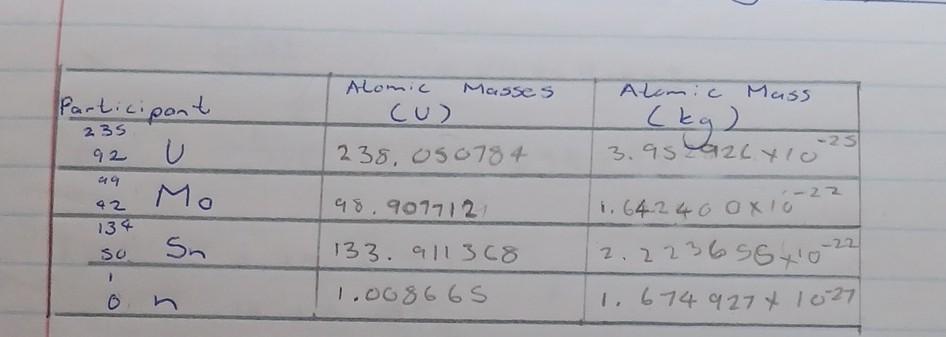 Participant Atomic Masses (U) Atomic Mass (kg)
235 92 U 238.050784 3.952926 x 10^-25
99 42 Mo 98.907712 1.642400 x 10^-22
134 50 Sn 133.911368 2.223656 x 10^-22
1 0 n 1.008665 1.674927 x 10^-27